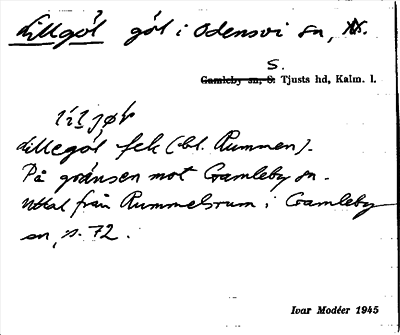 Lillgöl göl i Odensvi sn,
S.
Gamleby sn, S. Tjusts hd, Kalm. l.
Lillegöl, fek (bl. Rummen).
På gränsen mot Gamleby sn.
Uttal från Rummelsrum i Gamleby
sn, s. 72.
Ivar Modéer 1945